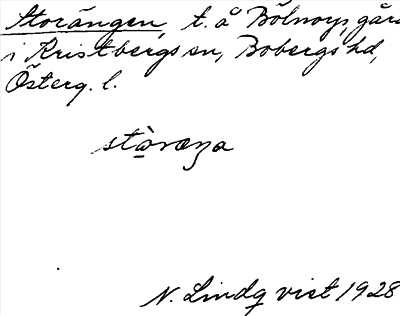 Storängen, t. å Bölnorps gård
i Kristbergs sn, Bobergs hd,
Österg. l.
stòræŋa
N. Lindqvist 1928